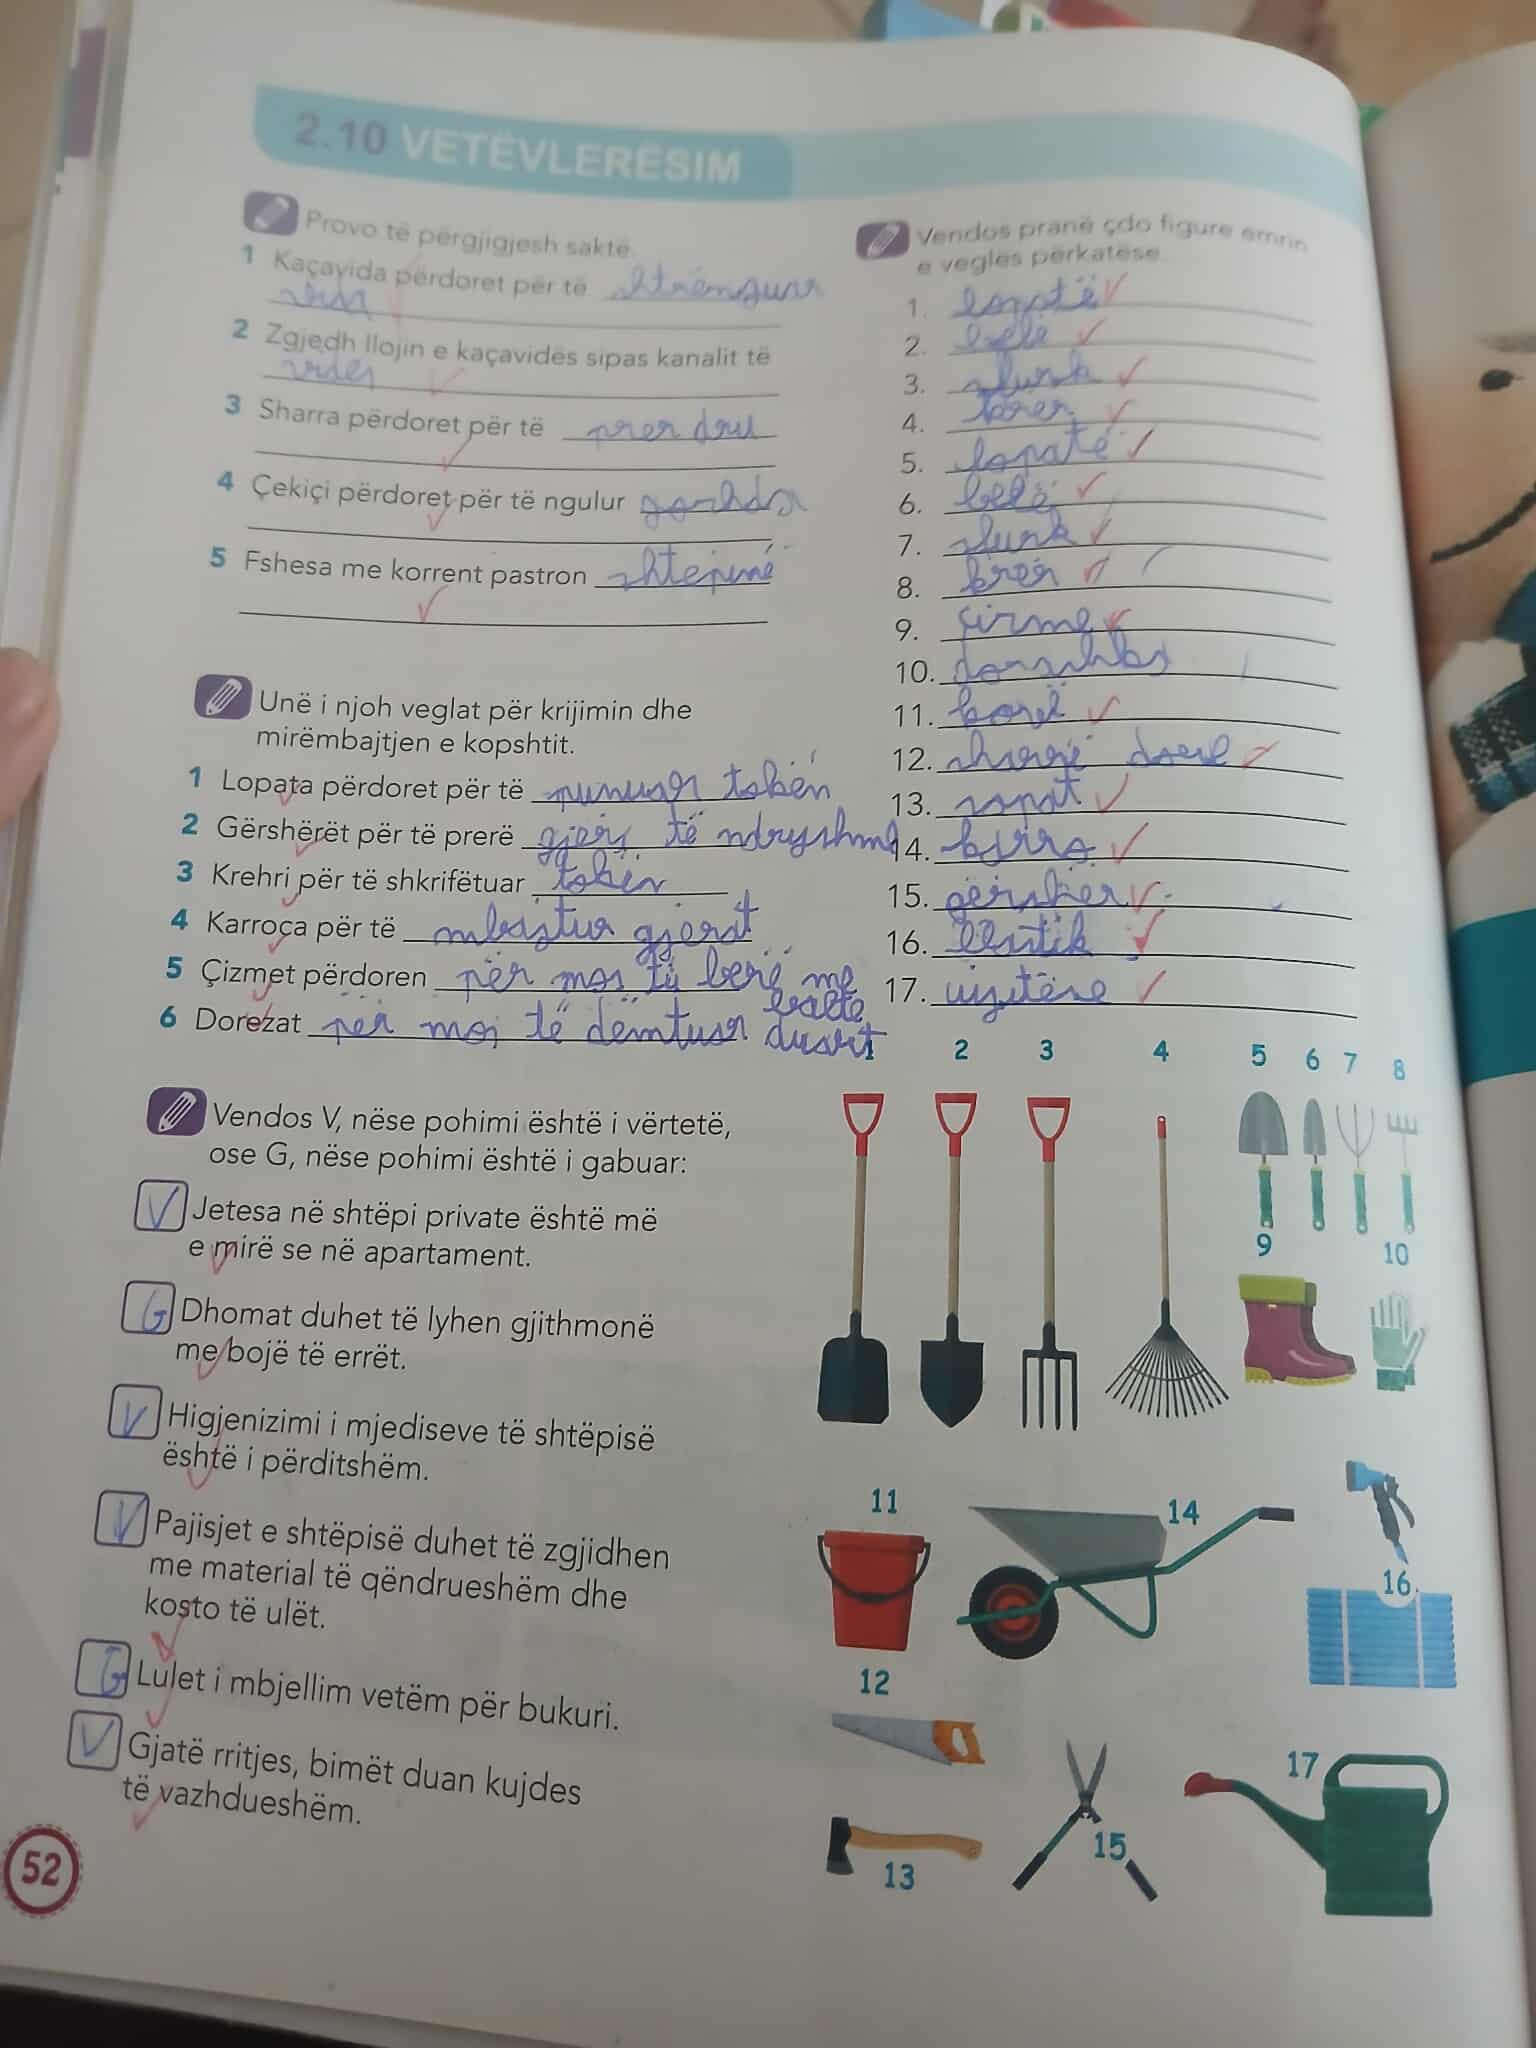 2.10 VETËVLERËSIM
Provo të përgjigjesh saktë.
1 Kaçavida përdoret për të shtrënguar
vida
2 Zgjedh llojin e kaçavidës sipas kanalit të
vides
3 Sharra përdoret për të prer dru
4 Çekiçi përdoret për të ngulur gozhda
5 Fshesa me korrent pastron shtepinë
Unë i njoh veglat për krijimin dhe
mirëmbajtjen e kopshtit.
1 Lopata përdoret për të punuar tokën
2 Gërshërët për të prerë gjëra të ndryshme
3 Krehri për të shkrifëtuar tokën
4 Karroca për të mbajtur gjerat
5 Çizmet përdoren për mos tu bërë me
balte
6 Dorezat për mos të dëmtuar duart
Vendos V, nëse pohimi është i vërtetë,
ose G, nëse pohimi është i gabuar:
V Jetesa në shtëpi private është më
e mirë se në apartament.
G Dhomat duhet të lyhen gjithmonë
me bojë të errët.
V Higjenizimi i mjediseve të shtëpisë
është i përditshëm.
V Pajisjet e shtëpisë duhet të zgjidhen
me material të qëndrueshëm dhe
kosto të ulët.
G Lulet i mbjellim vetëm për bukuri.
V Gjatë rritjes, bimët duan kujdes
të vazhdueshëm.
52
Vendos pranë çdo figure emrin
e veglës përkatëse.
1. lopatë
2. belë
3. sfurk
4. krër
5. lopatë
6. belë
7. sfurk
8. krër
9. çizme
10.
11. kovë
12. sharrë dore
13. sopat
14. karro
15. gërshër
16.
17. ujitëse
1 2 3 4 5 6 7 8
9 10
11 14
16
12
17
15
13